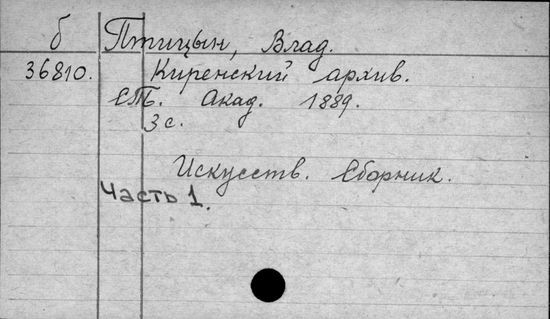 б Птицын, Влад.
36810. Киренский архив.
СПб. Акад. 1889.
3 с.
Искусств. Сборник.
Часть 1.